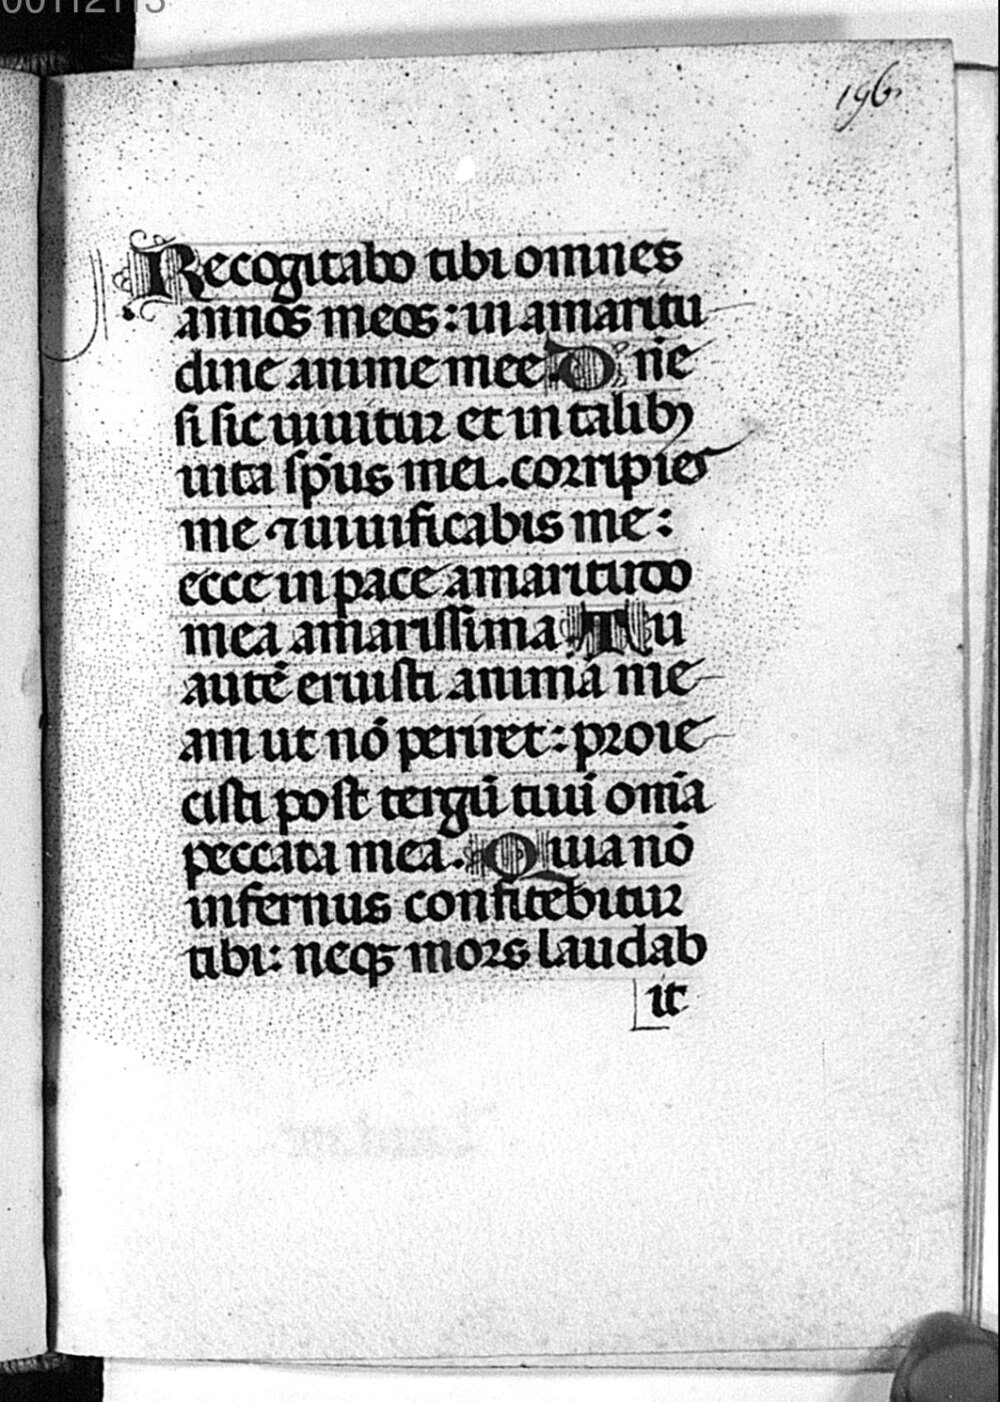 00112113
196
Recogitabo tibi omnes
annos meos: in amaritu
dine anime mee. Dn̄e
si sic uiuitur et in talibꝫ
uita sp̄us mei. corripies
me ⁊ uiuificabis me:
ecce in pace amaritudo
mea amarissima. Tu
autē eruisti animā me
am ut nō periret: proie
cisti post tergū tuū om̄ia
peccata mea. Quia nō
infernus confitebitur
tibi: neqꝫ mors laudab
it